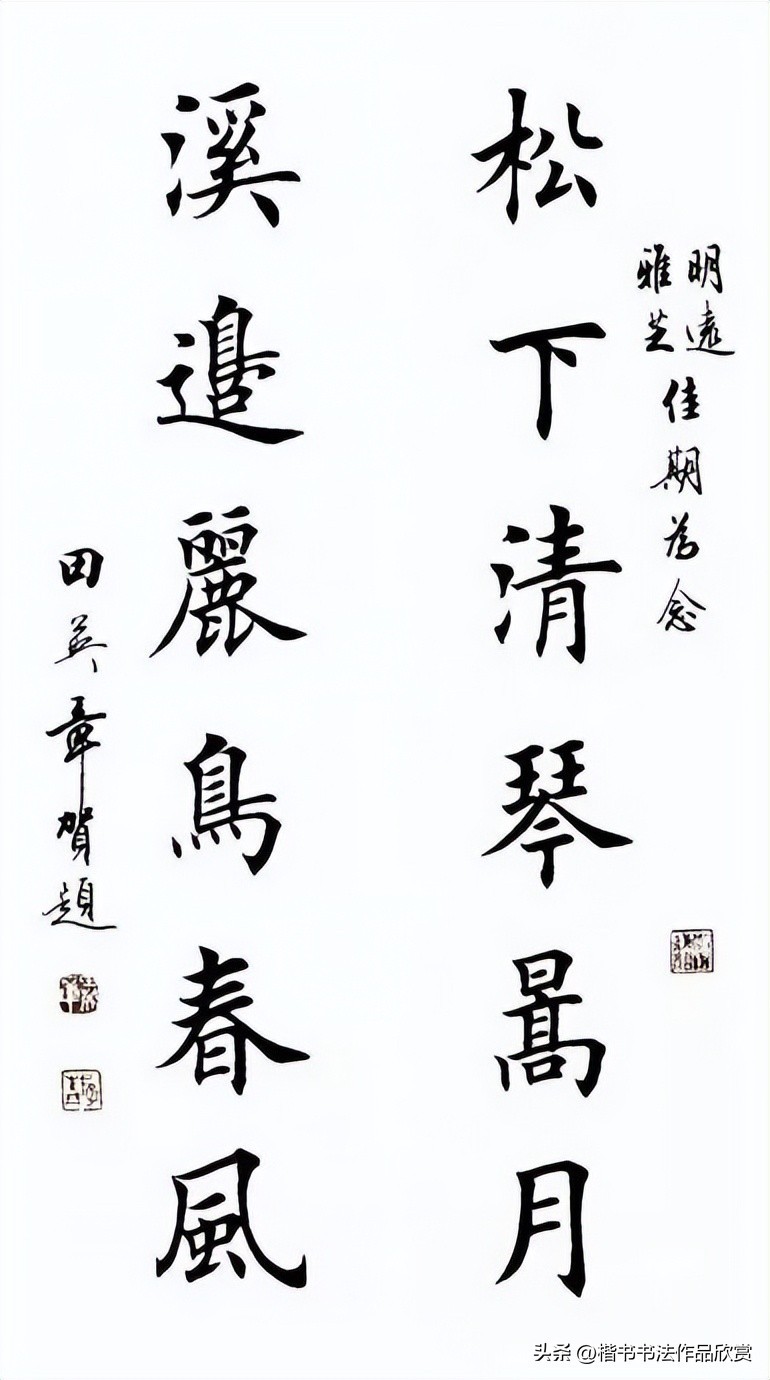 明遠
雅芝
佳期為念
松下清琴暠月
溪邉麗鳥春風
田英章賀題
头条 @楷书书法作品欣赏